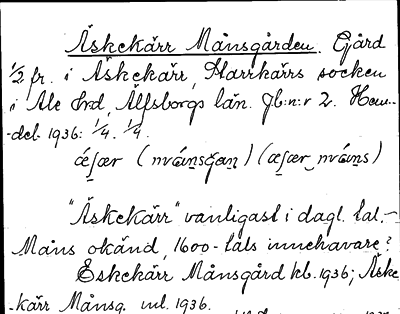 Äskekärr Månsgården. Gård
1/2 fr. i Äskekärr, Starrkärrs socken
i Ale hrd, Älfsborgs län. Jb:n:r 2. Hem-
-del 1936: 1/4. 1/4.
"Äskekärr" vanligast i dagl. tal.-
Måns okänd, 1600-tals innehavare?
Eskekärr Månsgård kb. 1936; Äske-
-kärr Månsg. ml. 1936.